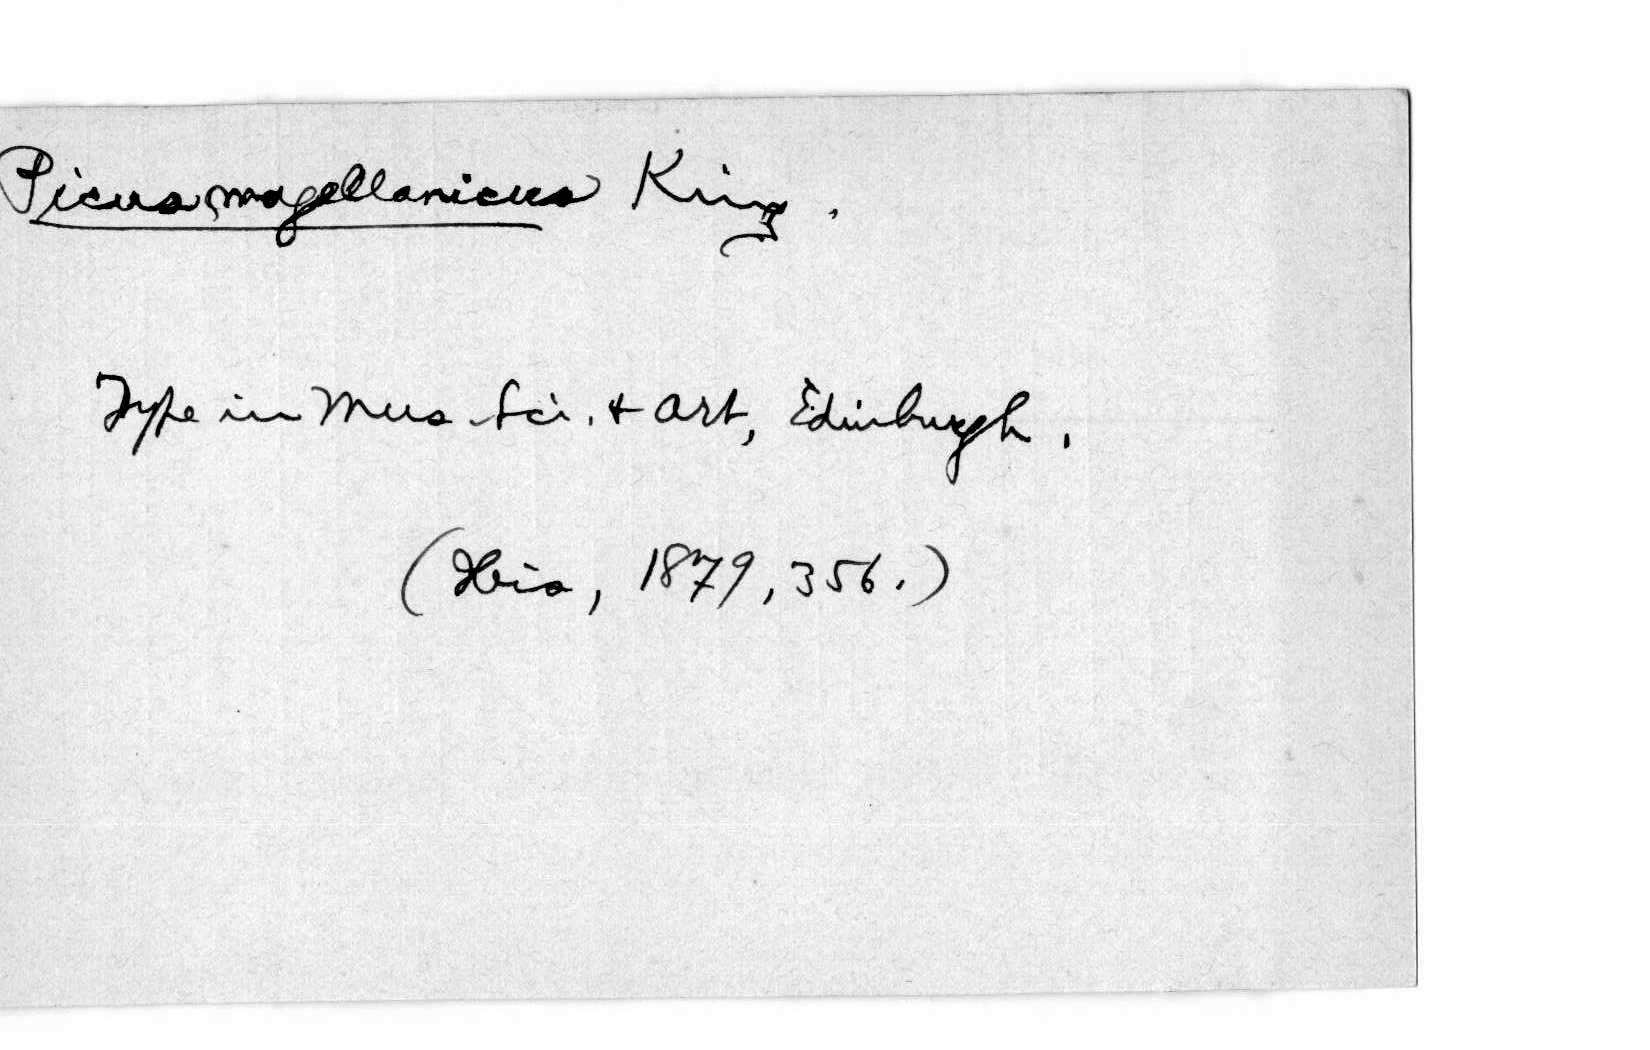 Picus magellanicus King.
Type in Mus. Sci. & Art, Edinburgh.
(Ibis, 1879, 356.)